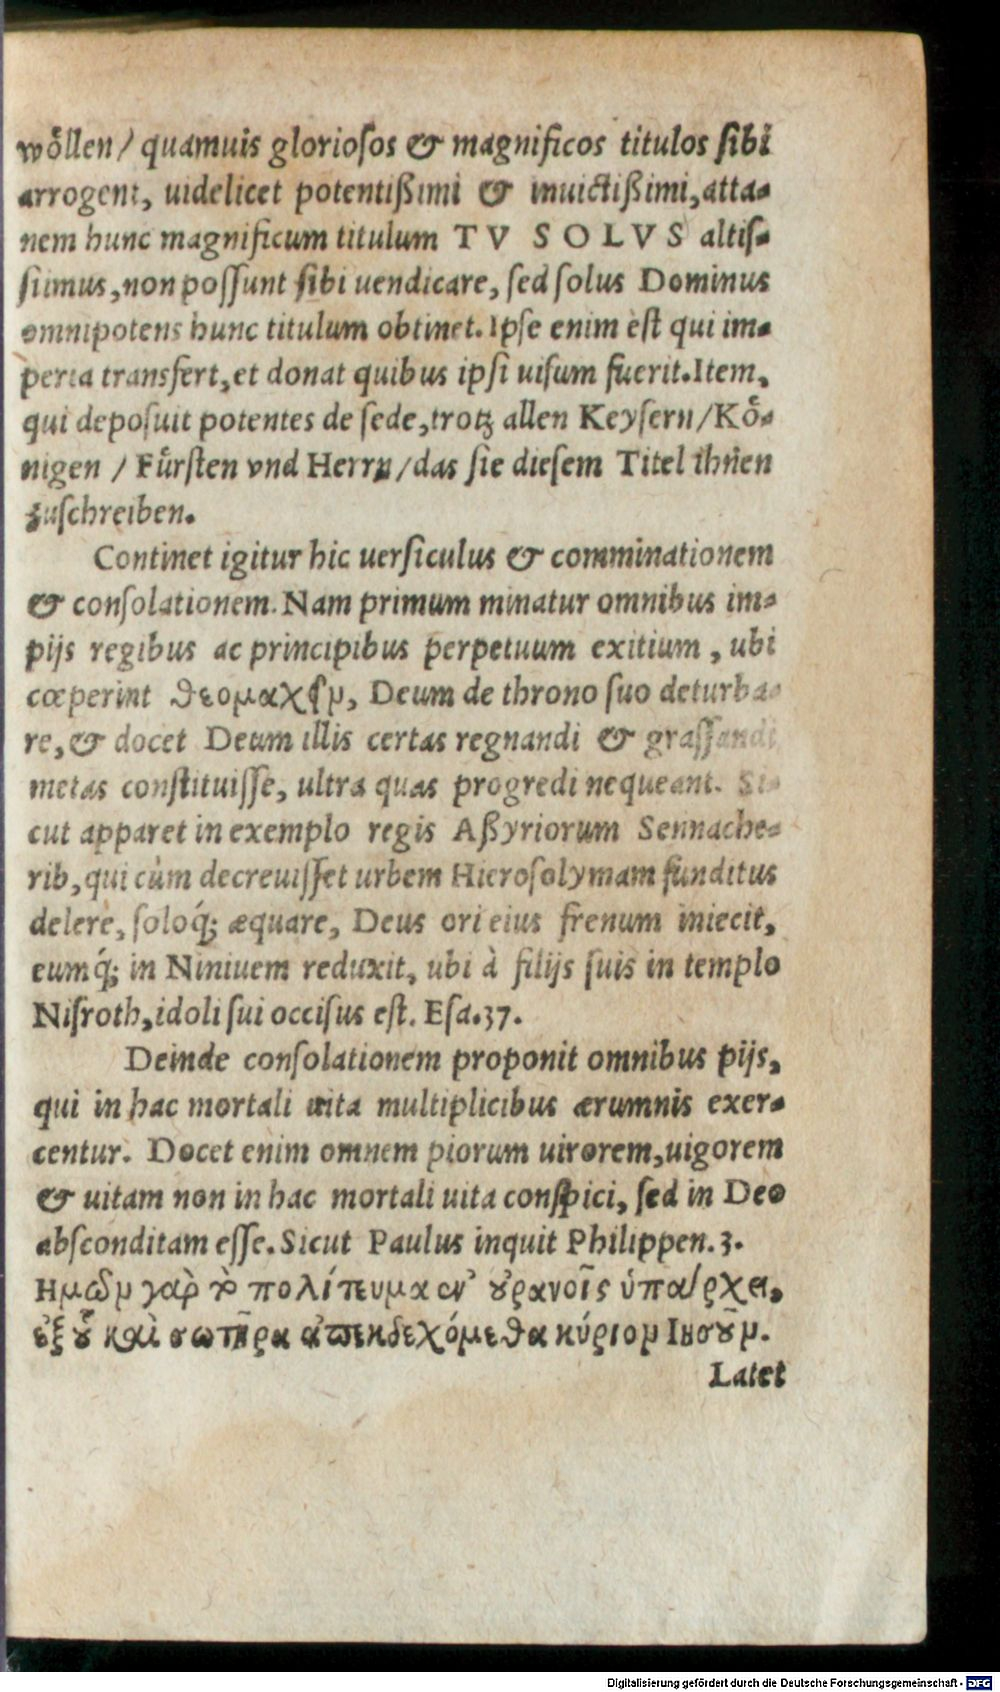 wo&#868;llen / quamuis gloriosos & magnificos titulos sibi
arrogent, uidelicet potentißimi & inuictißimi, atta-
nem hunc magnificum titulum TV SOLVS altis-
simus, non possunt sibi uendicare, sed solus Dominus
omnipotens hunc titulum obtinet. Ipse enim est qui im-
peria transfert, et donat quibus ipsi uisum fuerit. Item,
qui deposuit potentes de sede, trotz allen Keysern / Koͤ-
nigen / Fuͤrsten vnd Herrn / das sie diesem Titel ihnen
zuschreiben.
Continet igitur hic uersiculus & comminationem
& consolationem. Nam primum minatur omnibus im-
pijs regibus ac principibus perpetuum exitium, ubi
cœperint θεομαχεῖν, Deum de throno suo deturba-
re, & docet Deum illis certas regnandi & grassandi
metas constituisse, ultra quas progredi nequeant. Si-
cut apparet in exemplo regis Aßyriorum Sennache-
rib, qui cùm decreuisset urbem Hierosolymam funditus
delere, soloq́; æquare, Deus ori eius frenum iniecit,
eumq́; in Niniuem reduxit, ubi à filijs suis in templo
Nisroth, idoli sui occisus est. Esa. 37.
Deinde consolationem proponit omnibus pijs,
qui in hac mortali uita multiplicibus ærumnis exer-
centur. Docet enim omnem piorum uirorem, uigorem
& uitam non in hac mortali uita conspici, sed in Deo
absconditam esse. Sicut Paulus inquit Philippen. 3.
Ημῶν γαρ̀ τὸ πολίτευμα ἐν οὐρανοῖς ὑπάρχει,
ἐξ οὗ καὶ σωτῆρα ἀπεκδεχόμεθα κύριον Ιησοῦν.
Latet
Digitalisierung gefördert durch die Deutsche Forschungsgemeinschaft - DFG